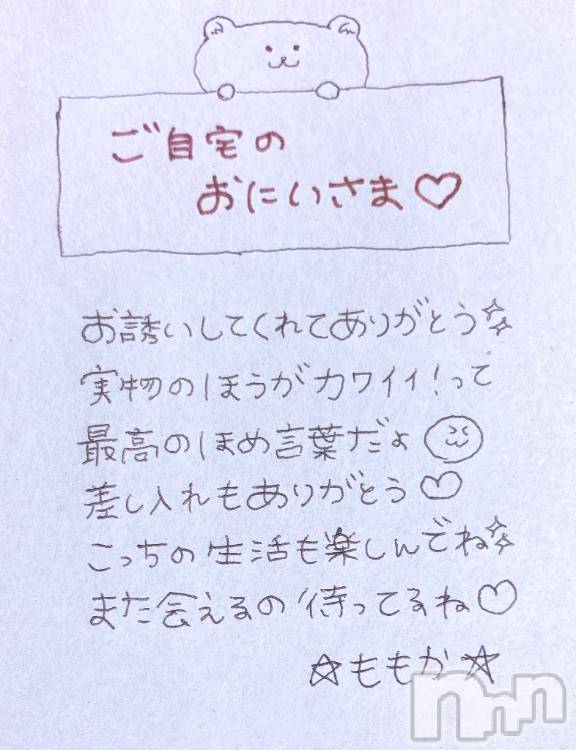 ご自宅の
おにいさま♡
お誘いしてくれてありがとう
実物のほうがカワイイ!って
最高のほめ言葉だよ
差し入れもありがとう♡
こっちの生活も楽しんでね
また会えるの待ってるね♡
☆ももか☆
nnn